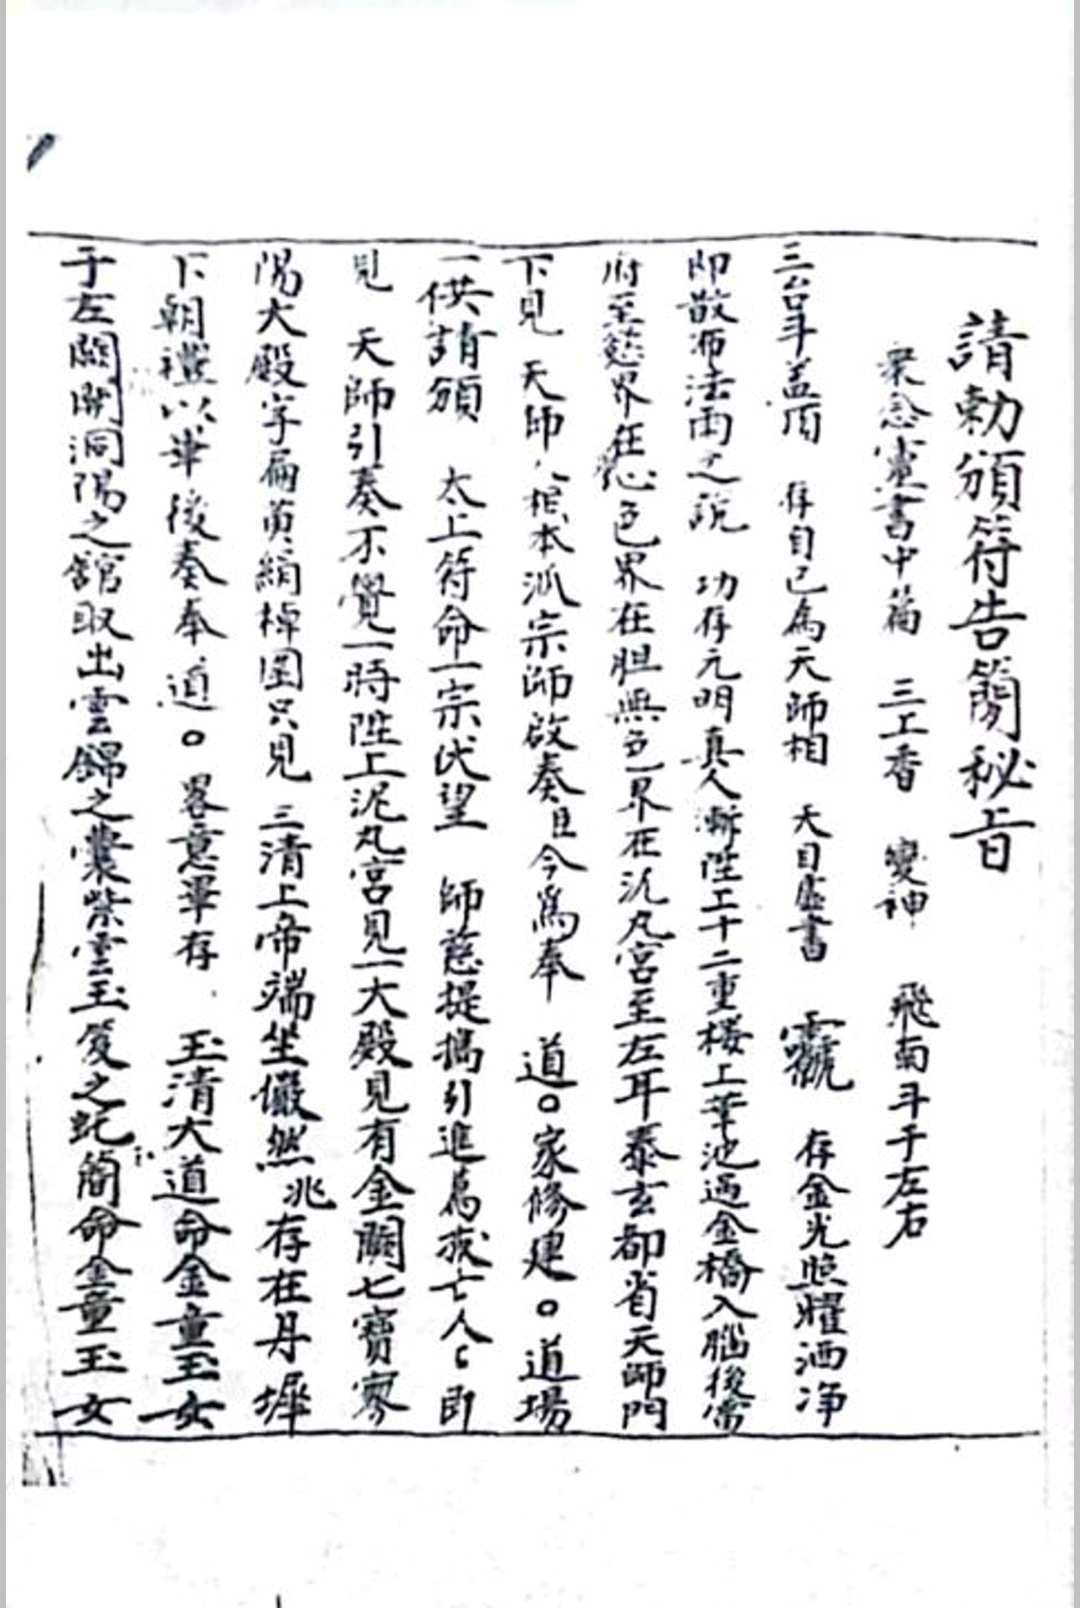 請勅頒符告簡秘旨
衆念靈書中篇　三上香　變神　飛南斗于左右
三台斗盖頂　存自己為天師相　天目虛書　存金光照耀洒净
即散洒法雨之説　功存元明真人漸陞上十二重樓上華池過金橋入腦後霄
府至慾界在心色界在胆無色界在泥丸宮至左耳泰玄都省天師門
下見　天師、本派宗師啟奏且今為奉　道○家修建○道場
一供請頒　太上符命一宗伏望　師慈提携引進為度亡人〻即
見　天師引奏不覺一時陞上泥丸宮見一大殿見有金闕七寶寥
陽大殿字扁黃絹棹圍只見　三清上帝端坐儼然　兆存在丹墀
下朝禮以畢後奏奉　道○畧意畢存　玉清大道命金童玉女
于左闕開洞陽之舘取出雲錦之囊紫雲玉笈之簡命金童玉女